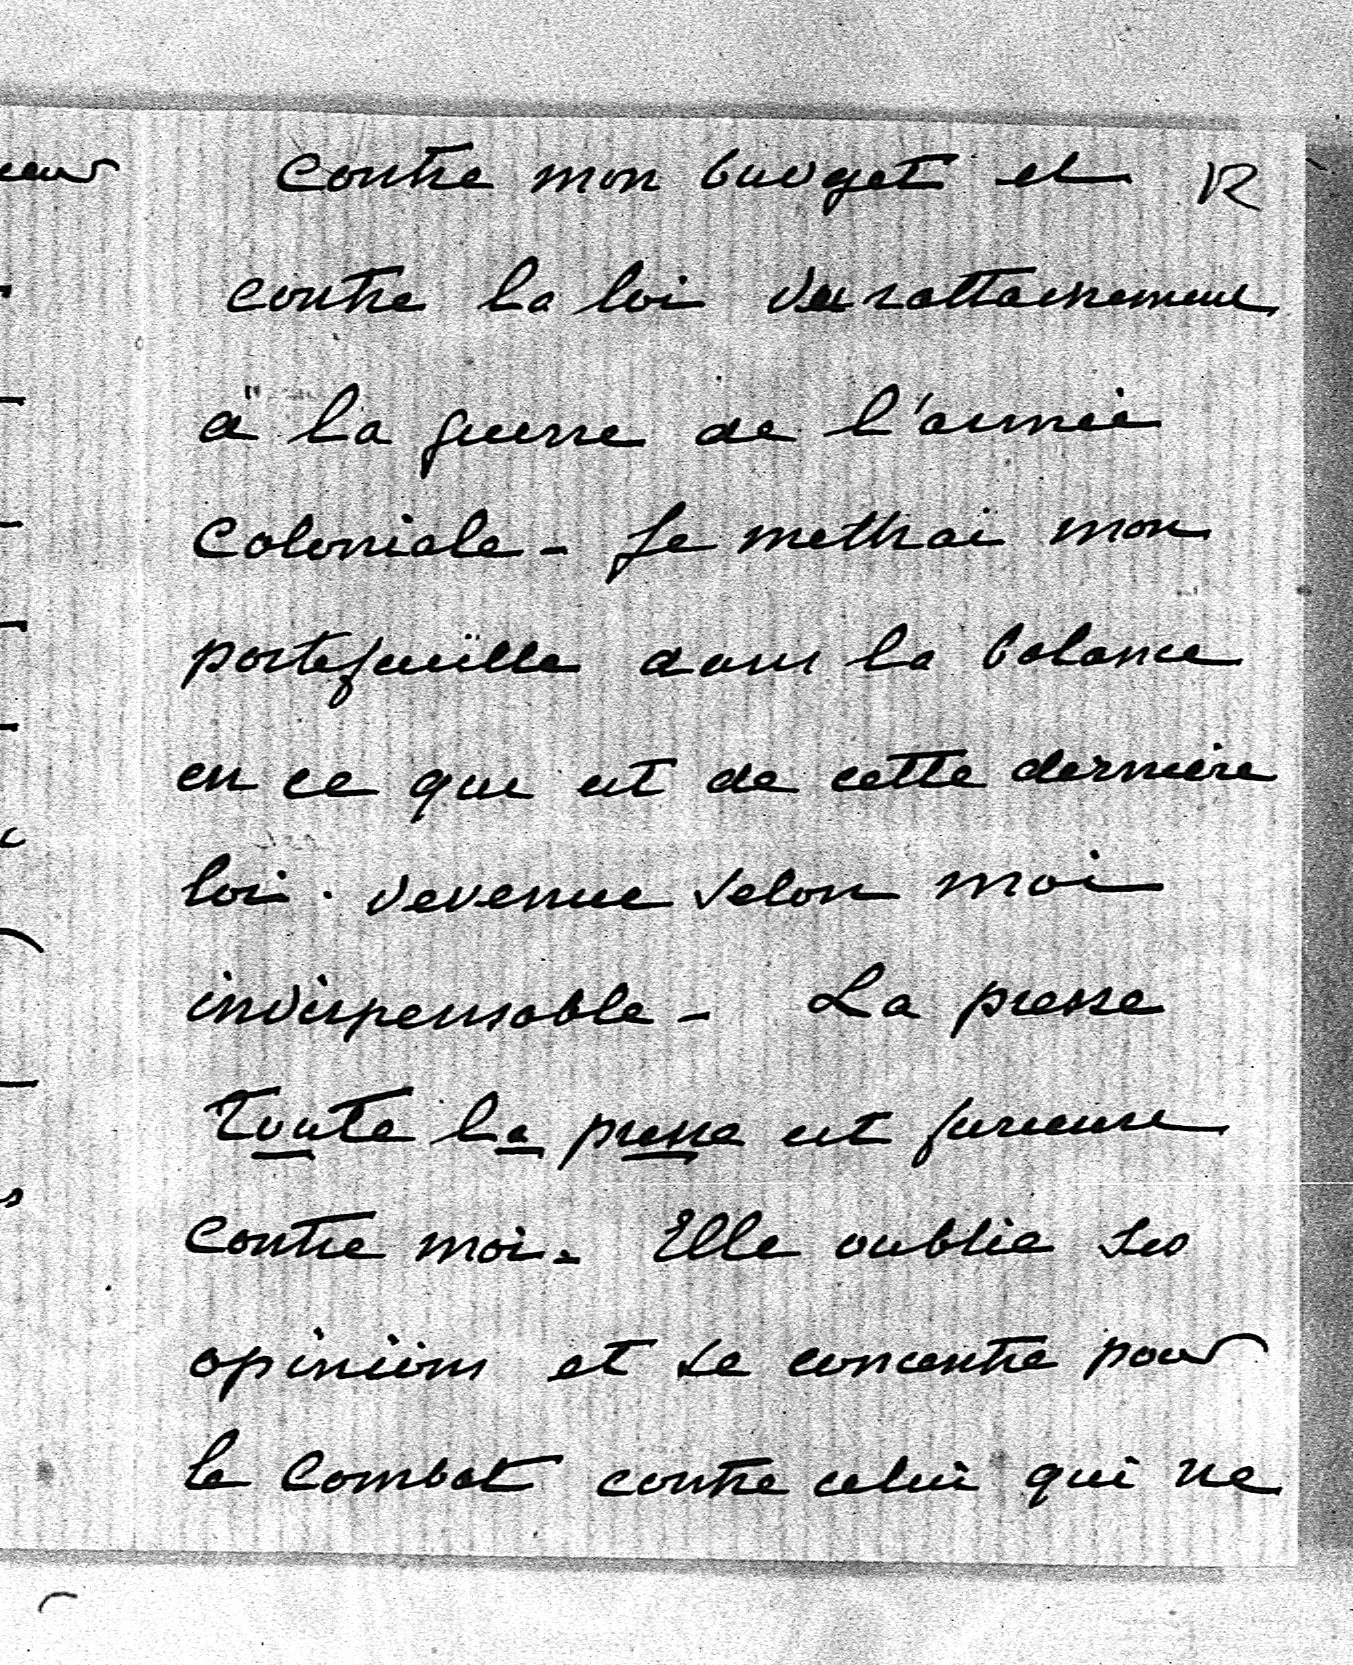 contre mon budget et
contre la loi du rattachement
à la guerre de l'armée
coloniale - Je mettrai mon
portefeuille dans la balance
en ce qui est de cette dernière
loi. devenue selon moi
indispensable - La presse
toute la presse est furieuse
contre moi. Elle oublie ses
opinions et se concentre pour
le combat contre celui qui ne